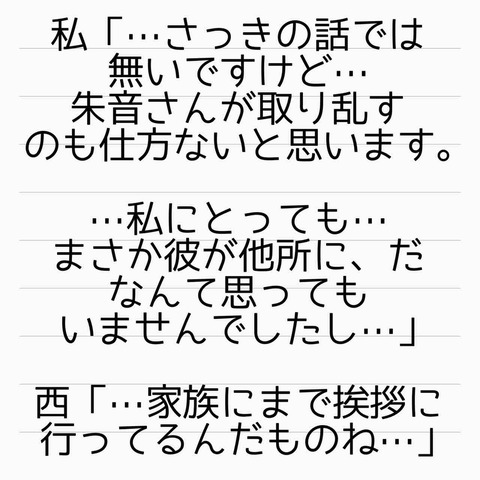 私「…さっきの話では
無いですけど…
朱音さんが取り乱す
のも仕方ないと思います。
…私にとっても…
まさか彼が他所に、だ
なんて思っても
いませんでしたし…」
西「…家族にまで挨拶に
行ってるんだものね…」